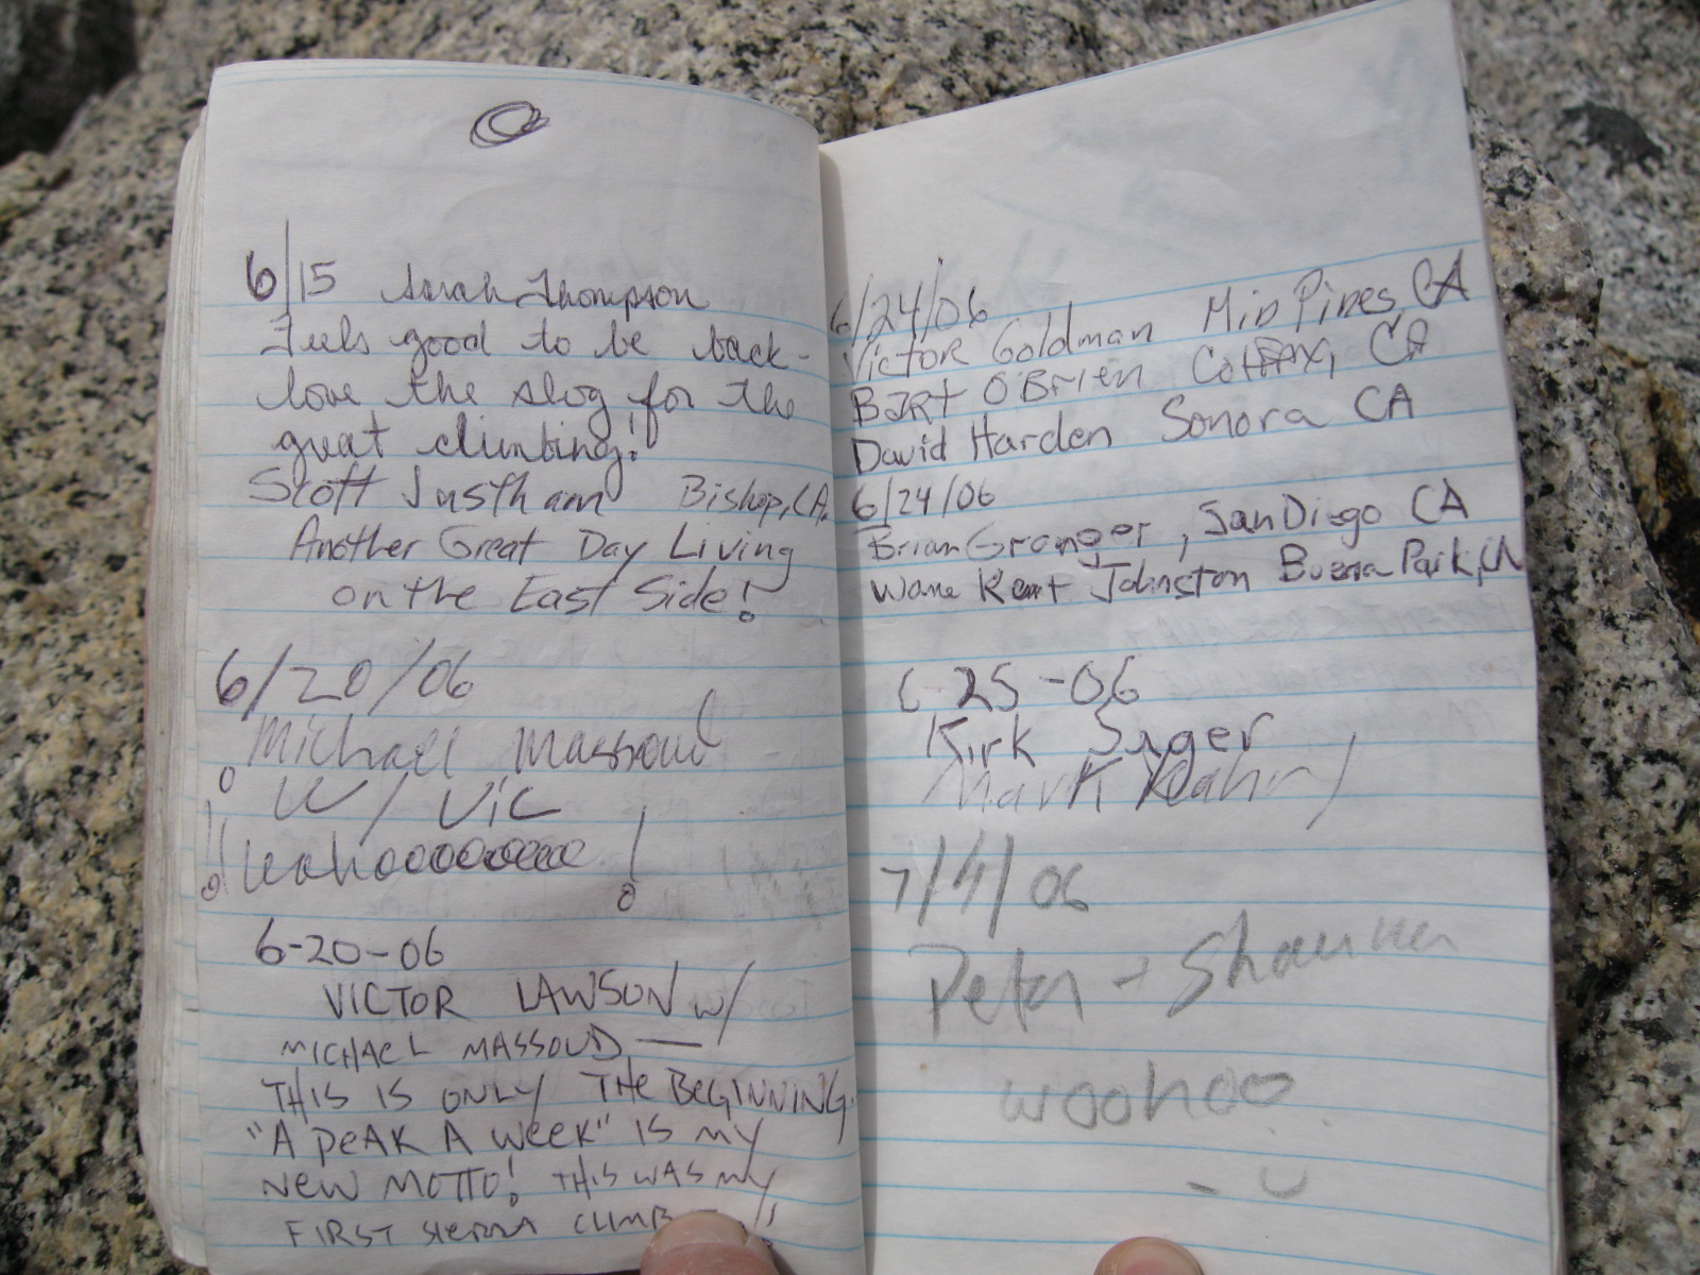 6/15 Sarah Thompson
Feels good to be back -
love the slog for the
great climbing!
Scott Justham Bishop, CA.
Another Great Day Living
on the East Side!
6/20/06
Michael Massoud
W/ Vic
!! Wohooooooooo !
6-20-06
VICTOR LAWSON w/
MICHAEL MASSOUD —
THIS IS ONLY THE BEGINNING.
"A PEAK A WEEK" IS MY
NEW MOTTO! THIS WAS MY
FIRST SIERRA CLIMB
6/24/06
Victor Goldman Mio Pines, CA
BART O'BRIEN Colfax, CA
David Harden Sonora CA
6/24/06
Brian Granger, San Diego CA
Kent Johnston Buena Park, CA
6 25-06
Kirk Sager
Mark
7/4/06
Peter + Shauna
woohoo